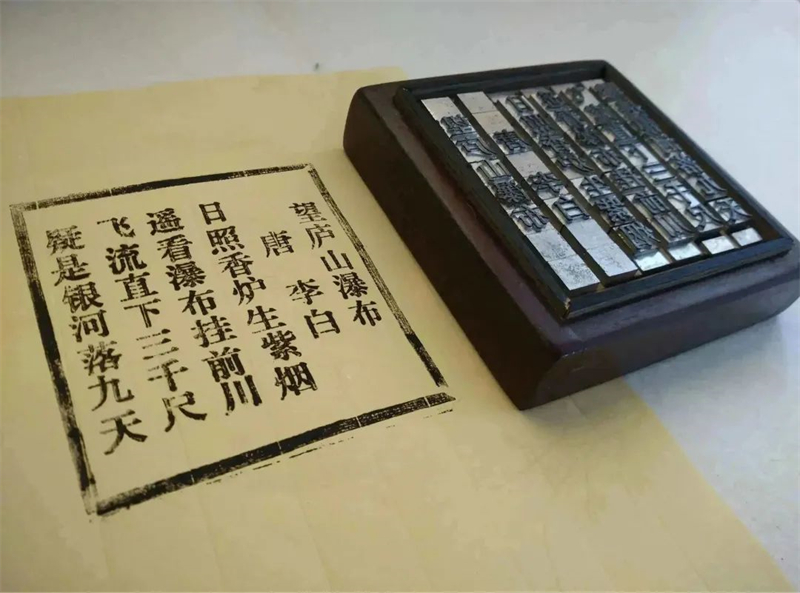 望庐山瀑布
唐 李白
日照香炉生紫烟
遥看瀑布挂前川
飞流直下三千尺
疑是银河落九天